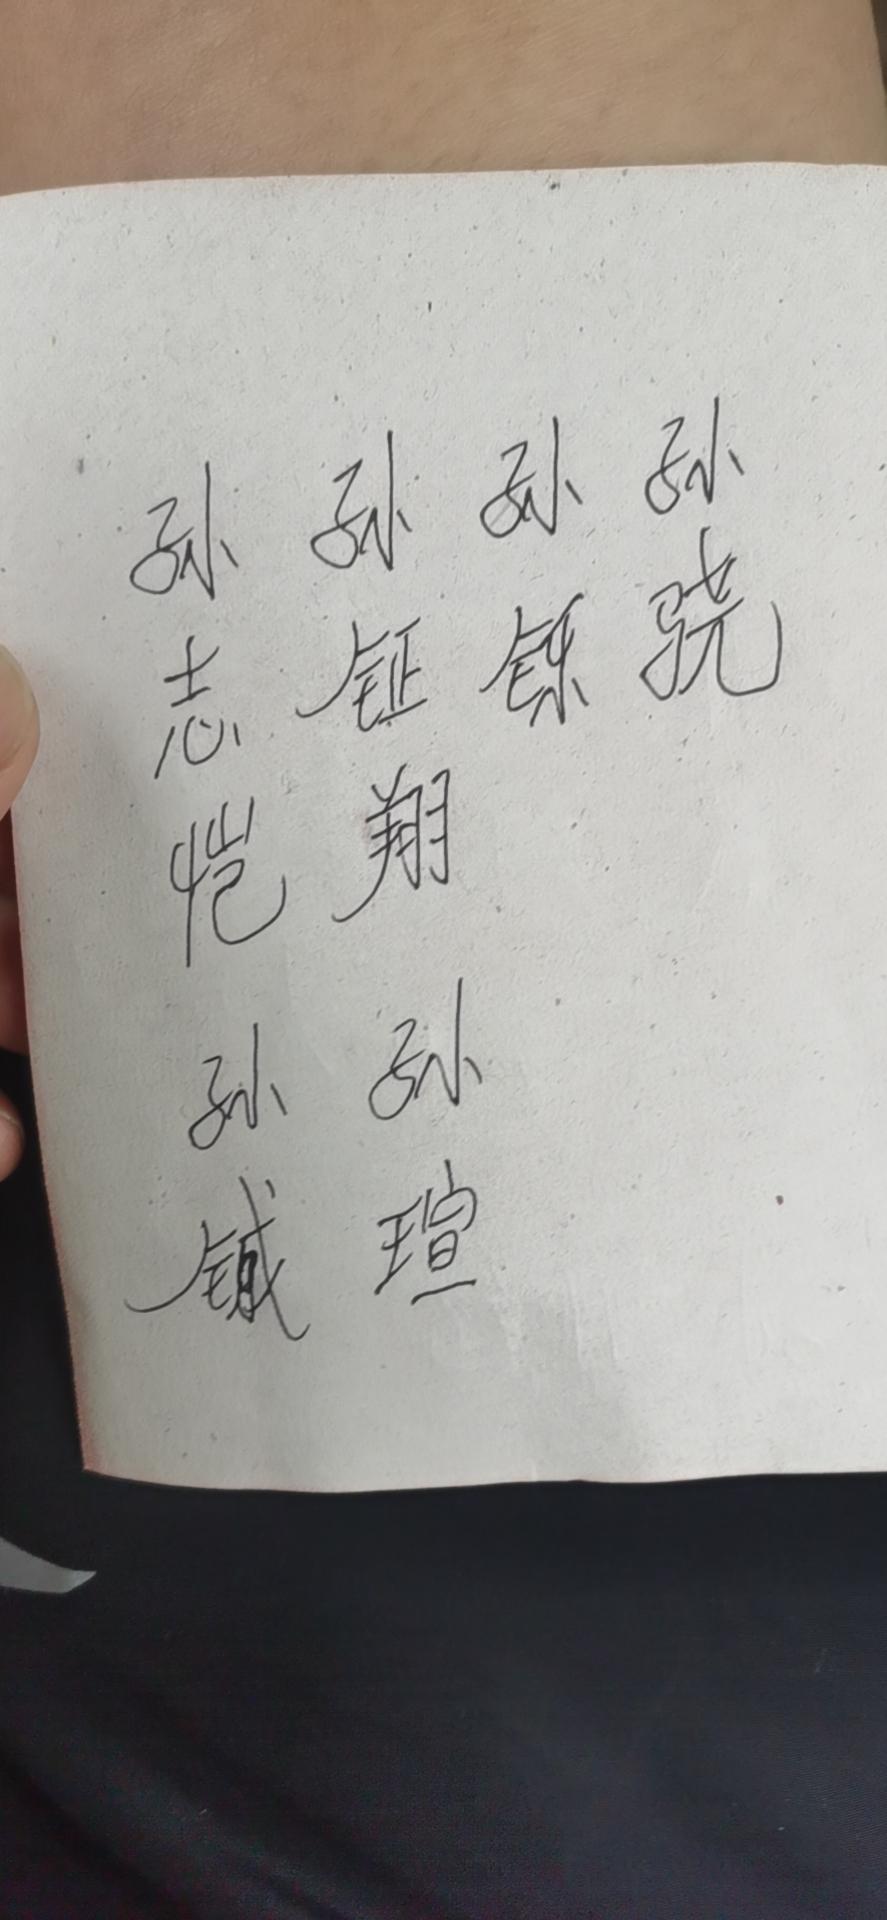 孙志恺
孙钲翔
孙铄
孙骁
孙铖
孙瑄